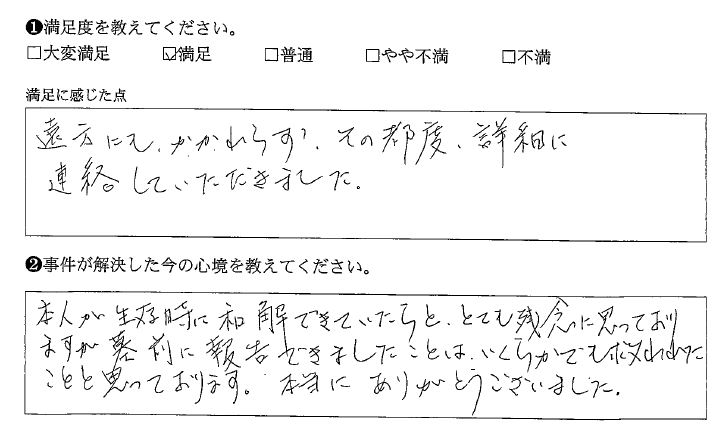 ❶満足度を教えてください。
□大変満足 ☑満足 □普通 □やや不満 □不満
満足に感じた点
遠方にも、かかわらず、その都度、詳細に
連絡していただきました。
❷事件が解決した今の心境を教えてください。
本人が生存時に和解できていたらと、とても残念に思っており
ますが墓前に報告できましたことは、いくらかでも救われた
ことと思っております。本当にありがとうございました。